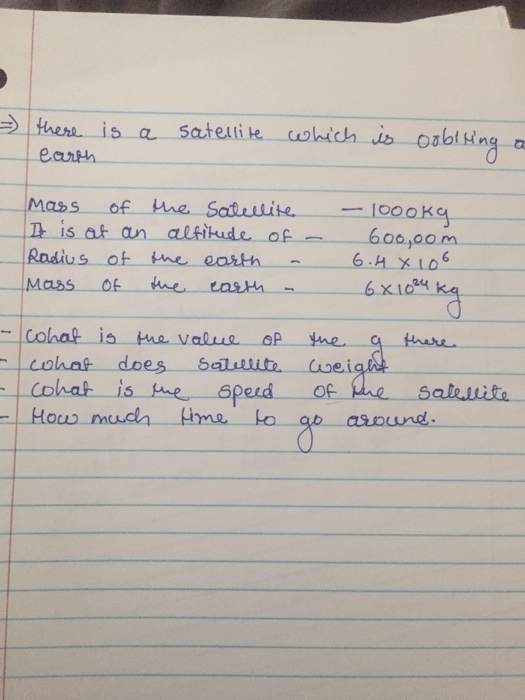 ⇒ there is a satellite which is orbiting a
earth
Mass of the Satellite — 1000kg
It is at an altitude of — 600,00m
Radius of the earth - 6.4 × 10⁶
Mass of the earth - 6×10²⁴ kg
- what is the value of the g there
- what does satellite weight
- what is the speed of the satellite
- How much time to go around.